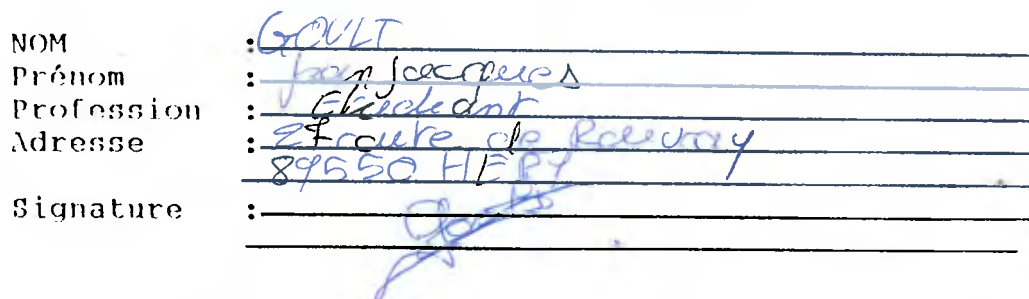 NOM : GOULT
Prénom : Jean Jacques
Profession : Etudiant
Adresse : 27 route de Rouvray
89550 HERY
Signature :